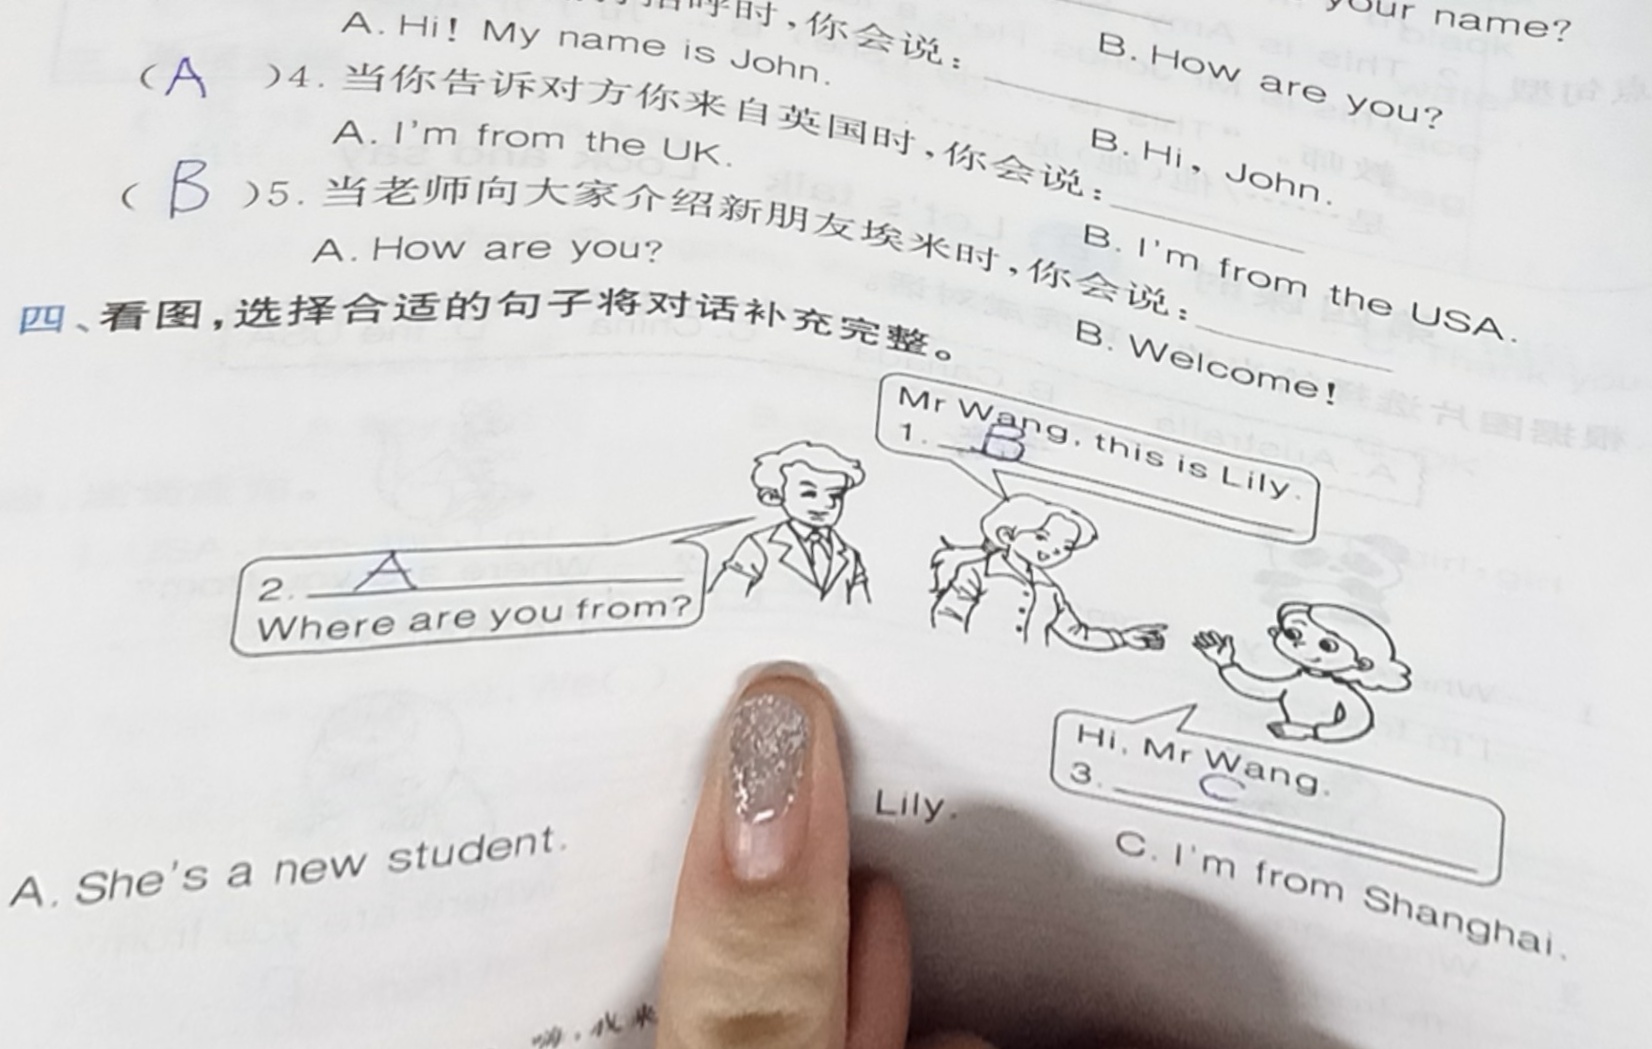 your name?
时，你会说：
A. Hi! My name is John.
B. How are you?
( A )4. 当你告诉对方你来自英国时，你会说：
B. Hi, John.
A. I'm from the UK.
B. I'm from the USA.
( B )5. 当老师向大家介绍新朋友埃米时，你会说：
A. How are you?
B. Welcome!
四、看图，选择合适的句子将对话补充完整。
Mr Wang, this is Lily.
1. B
2. A
Where are you from?
Hi, Mr Wang.
3. C
A. She's a new student.
Lily.
C. I'm from Shanghai.
嗨，我来